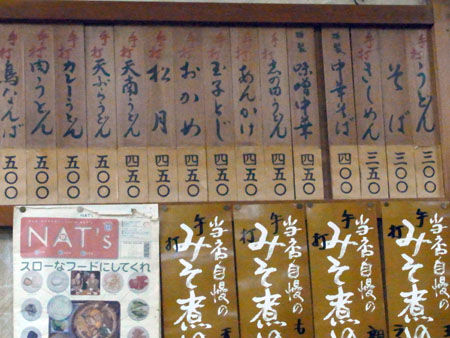 手打 うどん 三〇〇
手打 そば 三〇〇
手打 きしめん 三五〇
中華そば 四〇〇
味噌中華 四五〇
手打 志の田うどん 四五〇
手打 あんかけ 四五〇
手打 玉子とじ 四五〇
手打 おかめ 四五〇
手打 松月 四五〇
手打 天南うどん 四五〇
手打 天ぷらうどん 五〇〇
手打 カレーうどん 五〇〇
手打 肉うどん 五〇〇
手打 鳥なんば 五〇〇
当店自慢の
手打 みそ煮
当店自慢の
手打 みそ煮
当店自慢の
手打 みそ煮
当店自慢の
手打 みそ煮
NAT's
NAT's
スローなフードにしてくれ